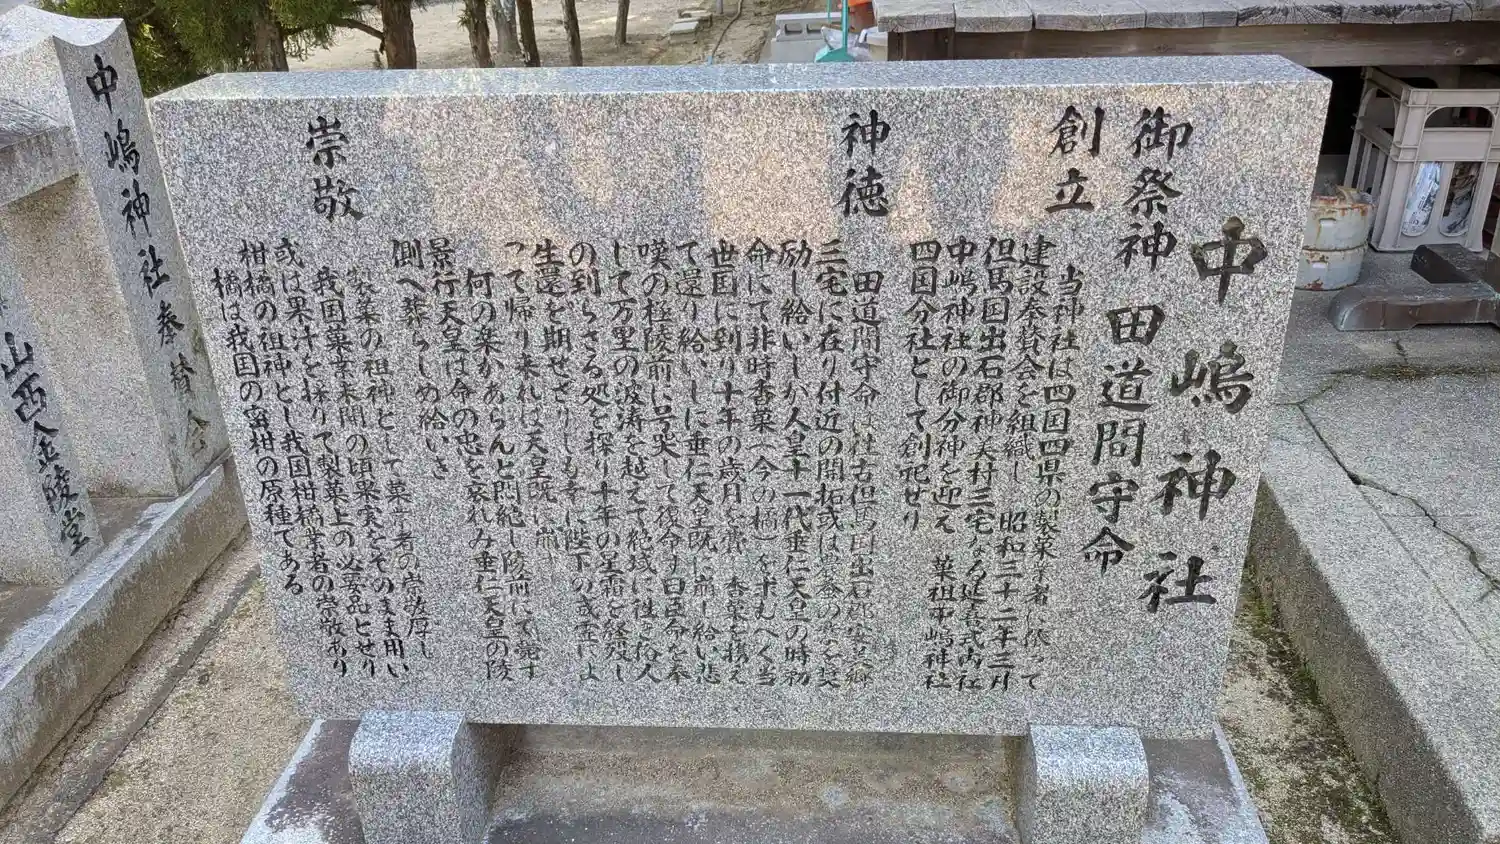 中嶋神社
御祭神 田道間守命
創立
当神社は四国四県の製菓業者に依って
建設奉賛会を組織し 昭和三十二年三月
但馬国出石郡神美村三宅なる延喜式内社
中嶋神社の御分神を迎え 菓祖中嶋神社
四国分社として創祀せり
神徳
田道間守命は往古但馬国出石郡
三宅に在り付近の開拓或は
励し給いしが人皇十一代垂仁天皇の時初
命にて非時香菓(今の橘)を求むべく当
世国に到り十年の歳月を費し 香菓を携え
て還り給いしに垂仁天皇既に崩し給い悲
嘆の極陵前に号哭して後今す曰臣命を奉
じて万里の波涛を越えて絶域に
の到らざる処を探り十年の星霜を経
生還を期せざりしも幸に陛下の
って帰り来れは天皇既に崩
何の楽かあらんと悶絶し陵前にて
景行天皇は命の忠を哀れみ垂仁天皇の陵
側へ葬らしめ給いき
崇敬
製菓の祖神として菓子業者の崇敬厚し
我国菓業未開の頃果実をそのまま用い
或は果汁を採りて製菓上の必要品とせり
柑橘の祖神とし我国柑橘業者の崇敬あり
橘は我国の蜜柑の原種である
中嶋神社奉賛会
山西金陵堂